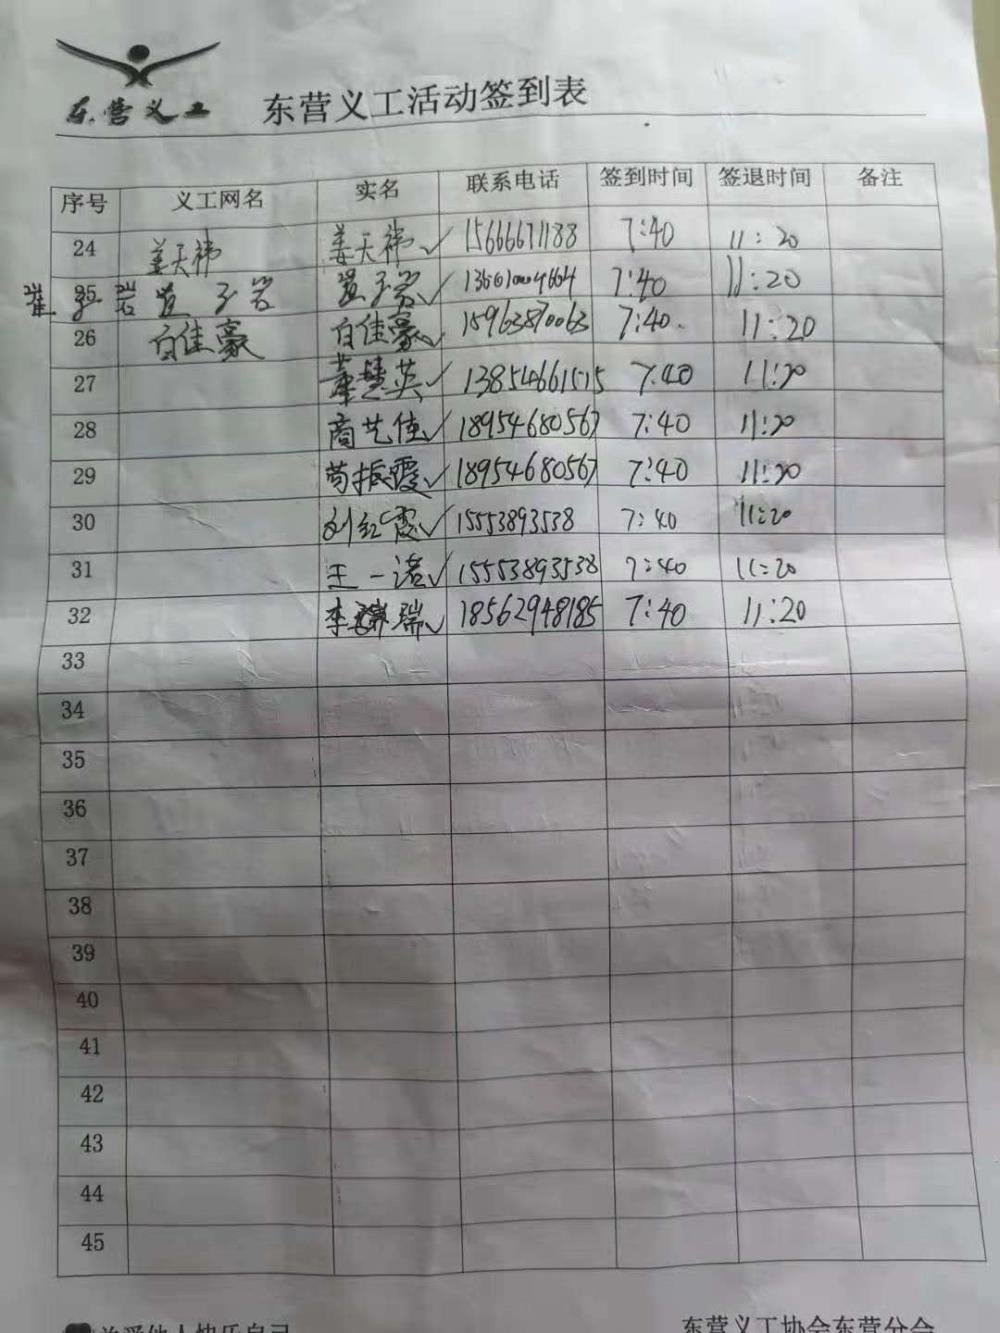 东营义工 东营义工活动签到表
序号 义工网名 实名 联系电话 签到时间 签退时间 备注
24 姜天祎 姜天祎✓ 15666671188 7:40 11:20
崔子岩 25 子岩 子岩✓ 7:40 11:20
26 白佳豪 白佳豪✓ 15963870063 7:40. 11:20
27 董慧英✓ 13854661515 7:40 11:20
28 商艺佳✓ 18954680567 7:40 11:20
29 苟振霞✓ 18954680567 7:40 11:20
30 刘红霞✓ 15553893538 7:40 11:20
31 王一诺✓ 15553893538 7:40 11:20
32 李瑞✓ 18562948185 7:40 11:20
33
34
35
36
37
38
39
40
41
42
43
44
45
关爱他人快乐自己 东营义工协会东营分会